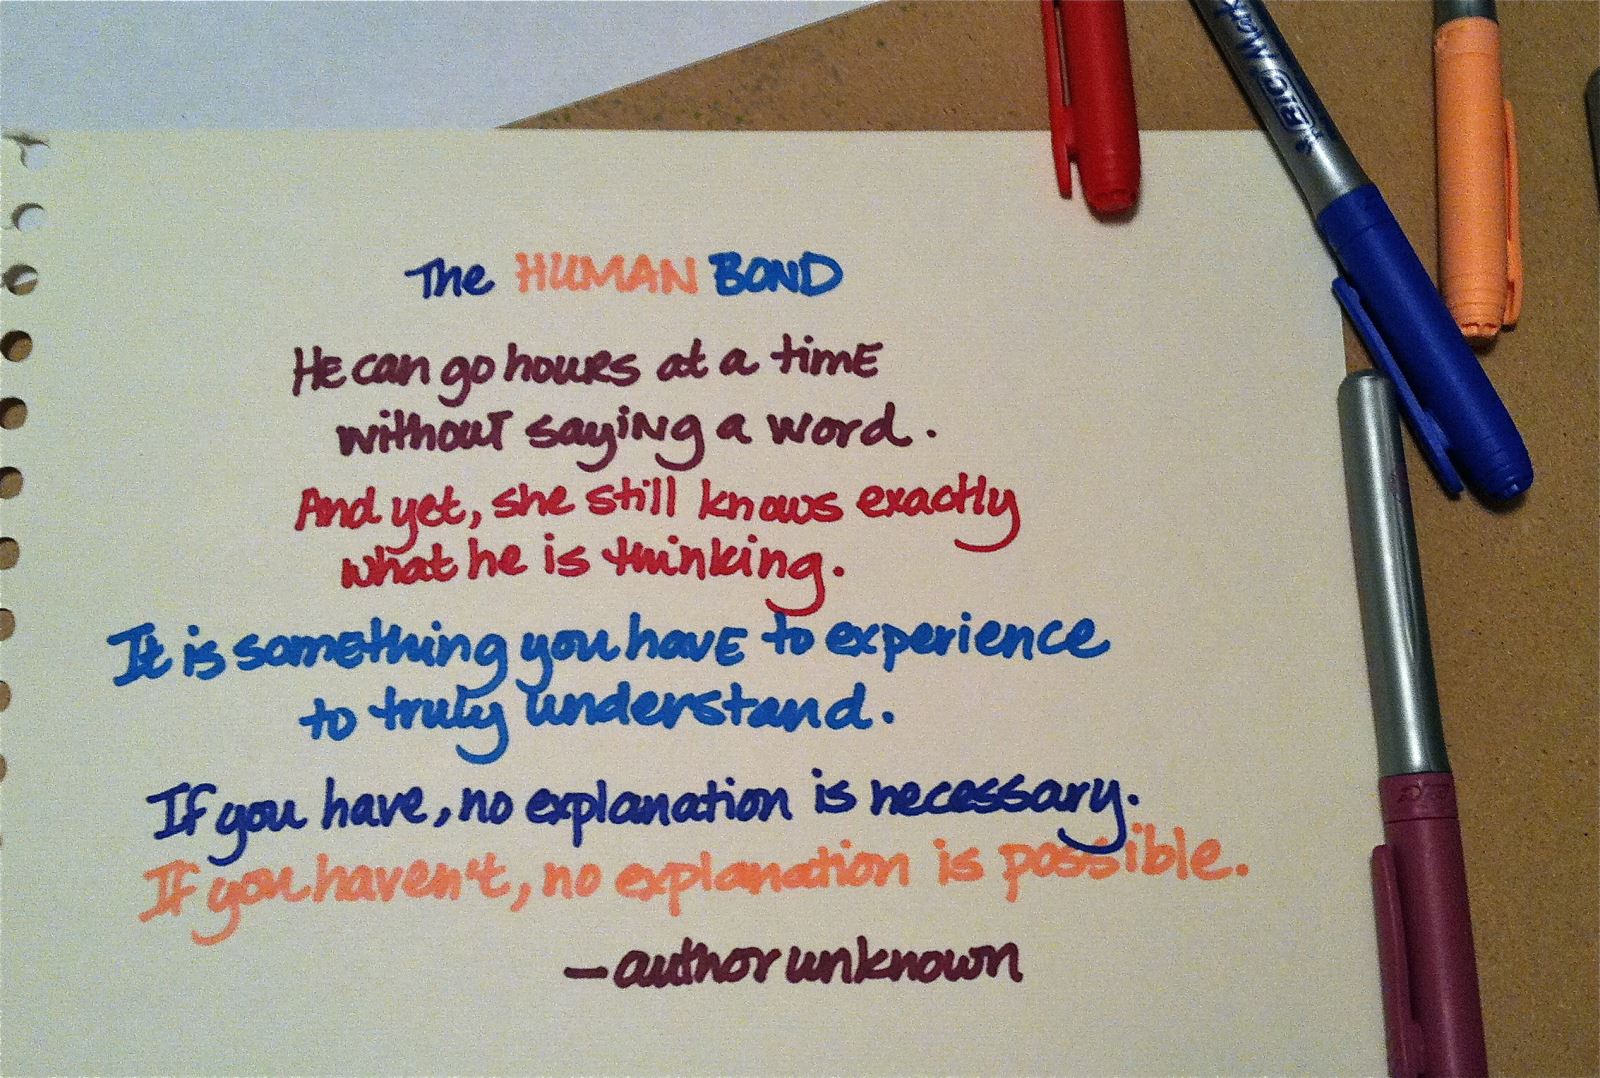 The HUMAN BOND
HE can go hours at a timE
without saying a word.
And yet, she still knows exactly
what he is thinking.
It is somEthing you havE to experience
to truly understand.
If you have, no explanation is necessary.
If you haven't, no explanation is possible.
—author unknown
BIC Mark